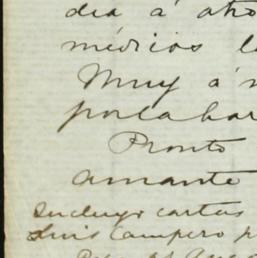 dia á otro
médicos l
Muy á
por la bar
Pronto
amante
Incluyo cartas
Luis Campero p